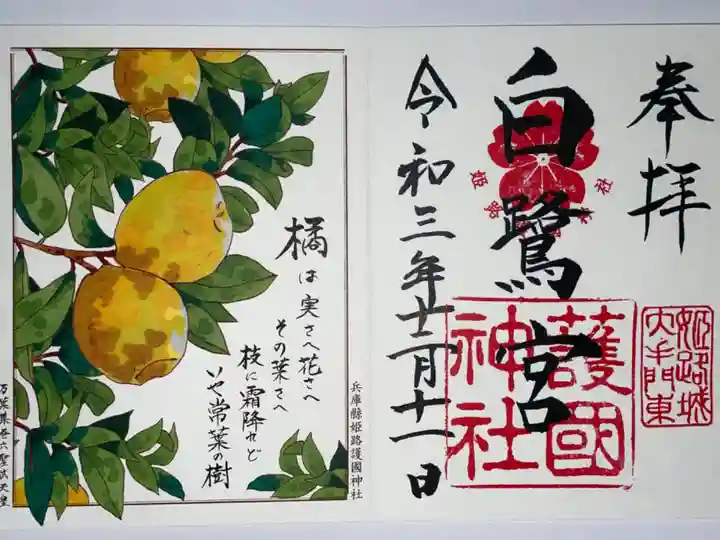 奉拝
姫路城
大手門東
白鷺宮
護國
神社
令和三年十二月十一日
兵庫縣姫路護國神社
橘は実さへ花さへ
その葉さへ
枝に霜降れど
いや常葉の樹
万葉集巻六聖武天皇